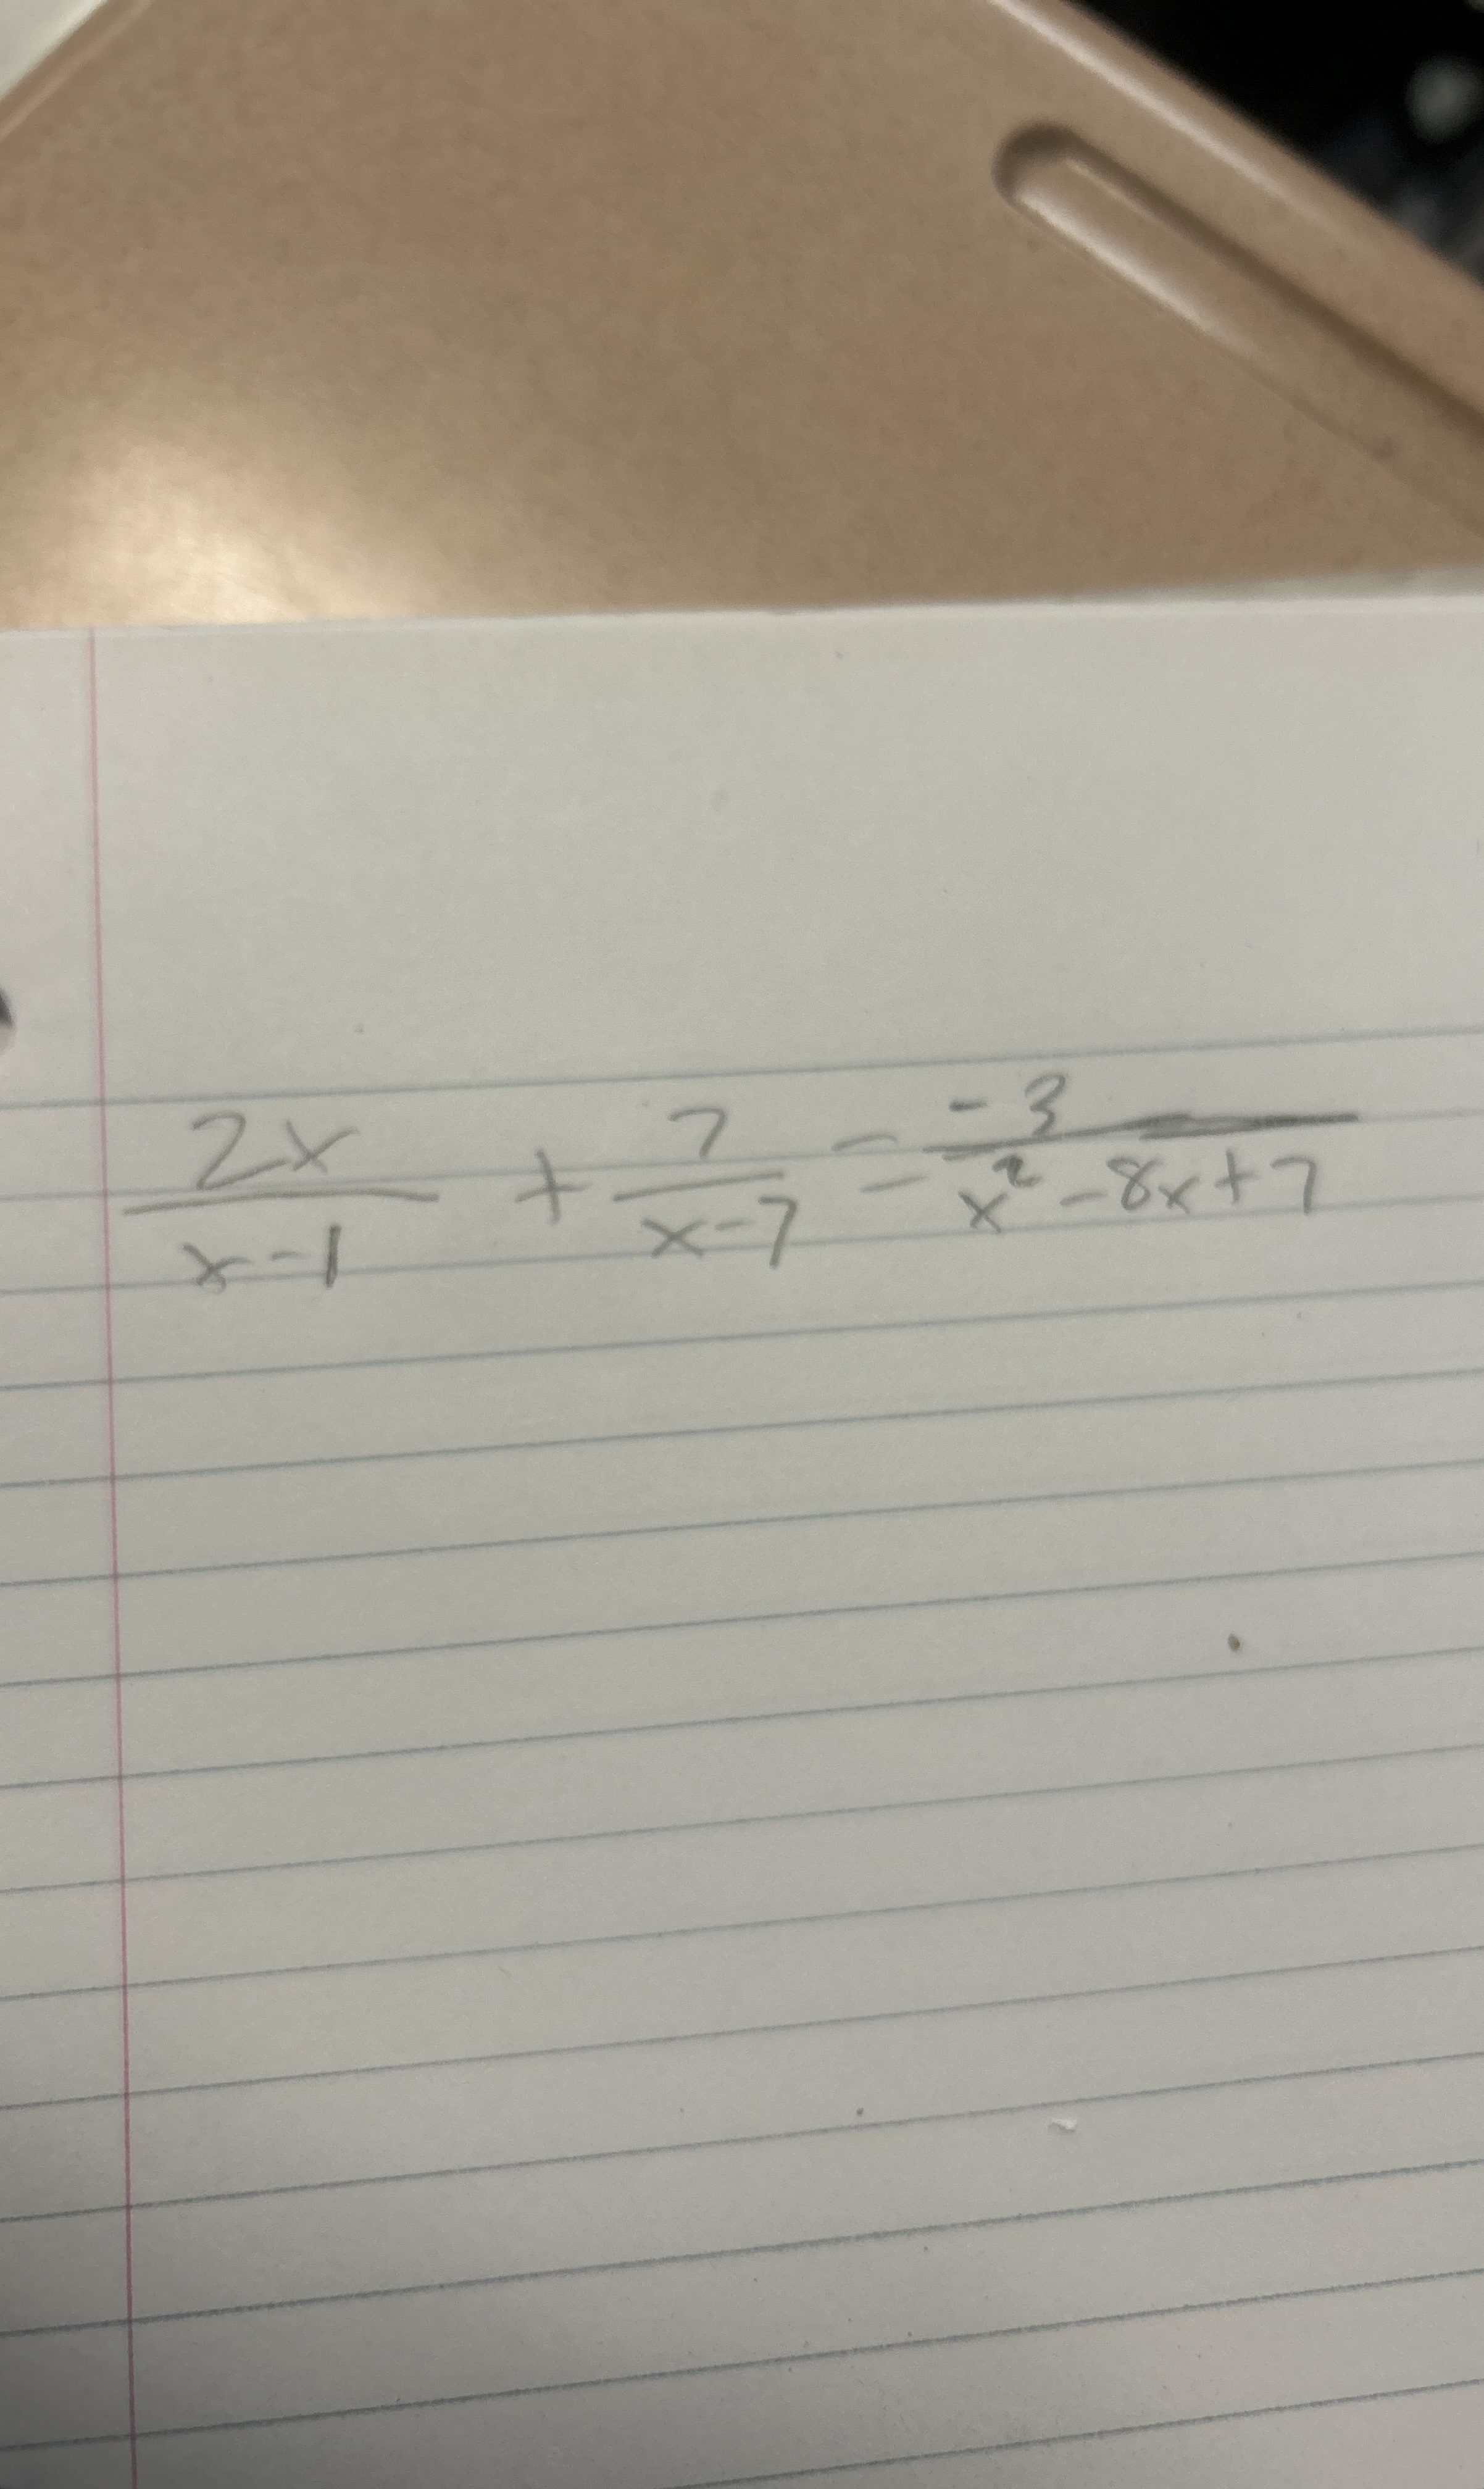 2x/(x-1) + 7/(x-7) = -3/(x²-8x+7)